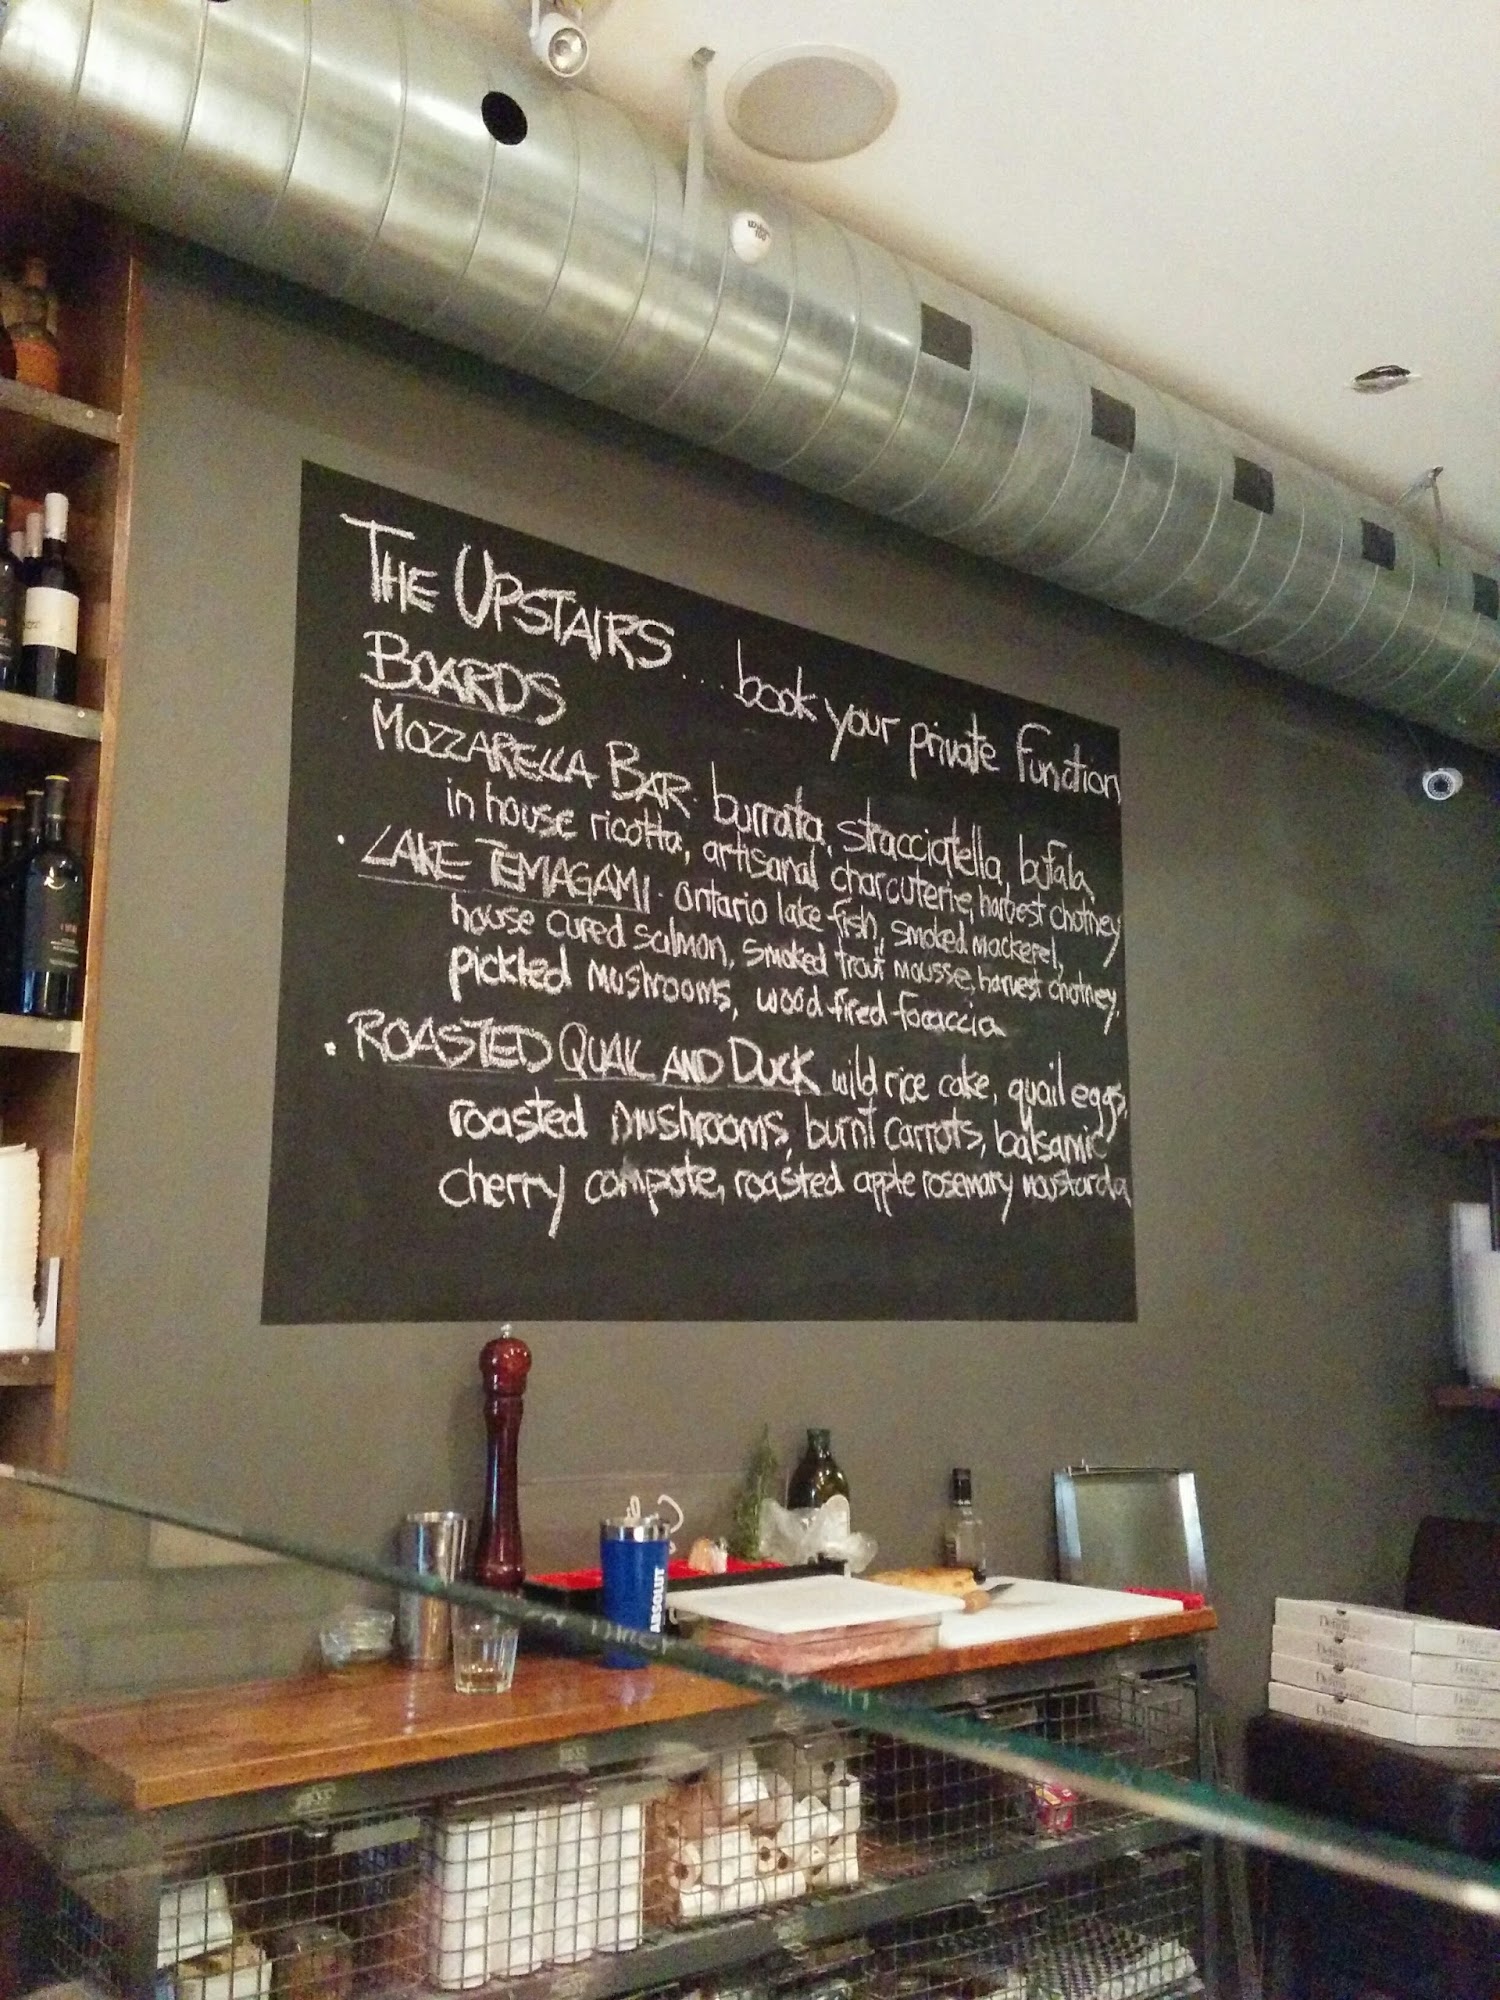 THE UPSTAIRS... book your private function
BOARDS
MOZZARELLA BAR. burrata, stracciatella, bufala,
in house ricotta, artisanal charcuterie, harvest chotney
· LAKE TEMAGAMI · ontario lake fish, smoked mackerel,
house cured salmon, smoked trout mousse, harvest chotney,
pickled mushrooms, wood fired focaccia
· ROASTED QUAIL AND DUCK wild rice cake, quail eggs,
roasted mushrooms, burnt carrots, balsamic
cherry compote, roasted apple rosemary mustarda
ABSOLUT